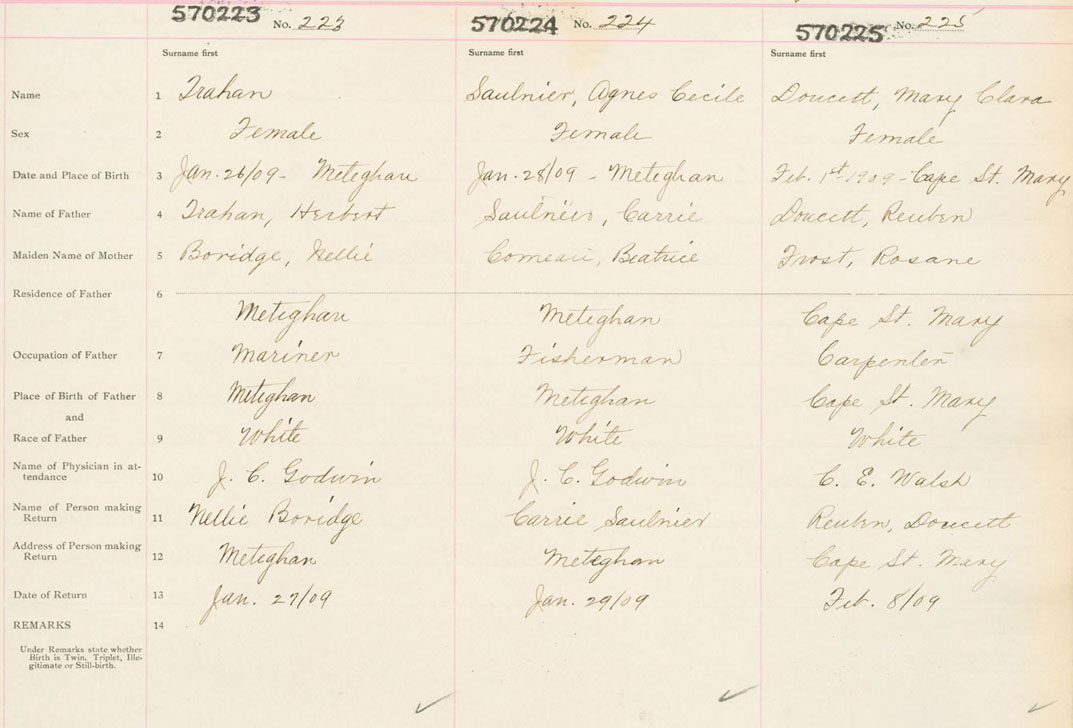 570223 No. 223 570224 No. 224 570225 No. 225
Surname first Surname first Surname first
Name 1 Trahan Saulnier, Agnes Cecile Doucett, Mary Clara
Sex 2 Female Female Female
Date and Place of Birth 3 Jan. 26/09 - Meteghan Jan. 28/09 - Meteghan Feb. 1st 1909 - Cape St. Mary
Name of Father 4 Trahan, Herbert Saulnier, Carrie Doucett, Reuben
Maiden Name of Mother 5 Boridge, Nellie Comeau, Beatrice Frost, Rosane
Residence of Father 6
Meteghan Meteghan Cape St. Mary
Occupation of Father 7 Mariner Fisherman Carpenter
Place of Birth of Father 8 Meteghan Meteghan Cape St. Mary
and
Race of Father 9 White White White
Name of Physician in at-
tendance 10 J. C. Godwin J. C. Godwin C. E. Walsh
Name of Person making
Return 11 Nellie Boridge Carrie Saulnier Reuben, Doucett
Address of Person making
Return 12 Meteghan Meteghan Cape St. Mary
Date of Return 13 Jan. 27/09 Jan. 29/09 Feb. 8/09
REMARKS 14
Under Remarks state whether
Birth is Twin, Triplet, Ille-
gitimate or Still-birth.